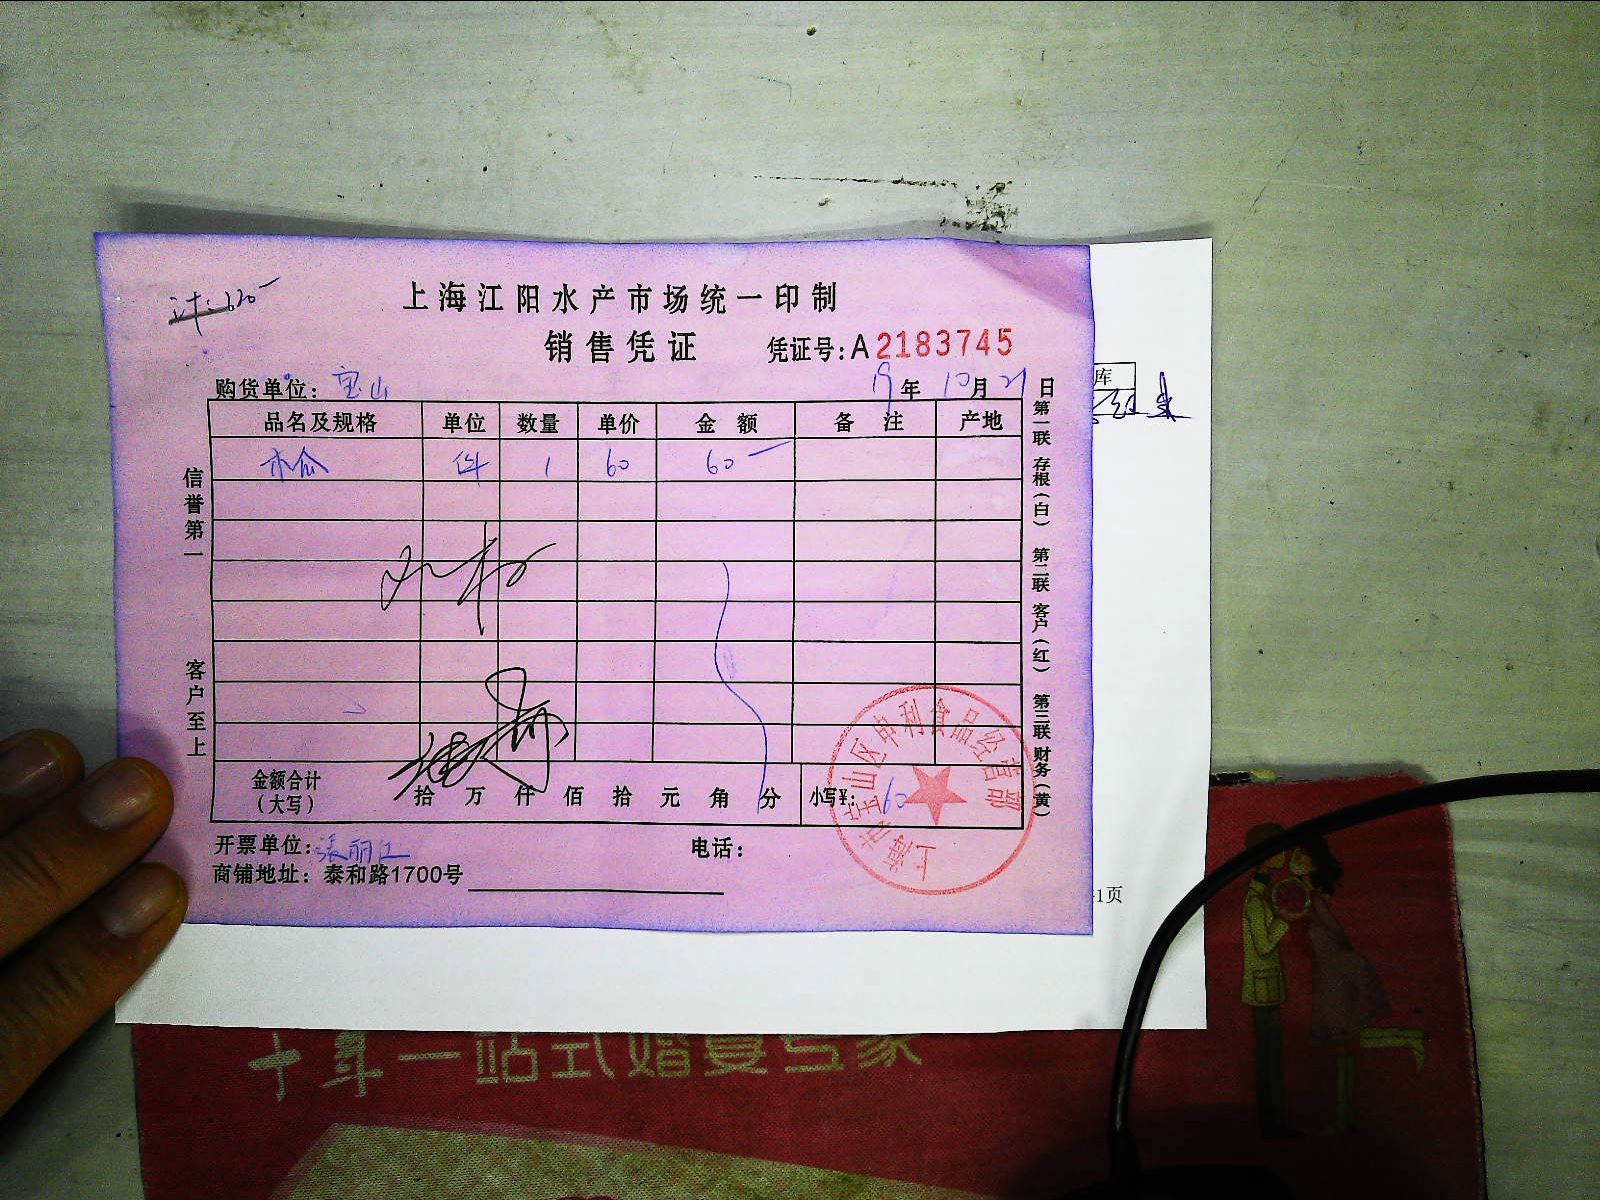 计:620
上海江阳水产市场统一印制
销售凭证
凭证号:A2183745
购货单位:宝山
19年10月21日
品名及规格 单位 数量 单价 金额 备注 产地
件 1 60 60
信誉第一
客户至上
第一联 存根(白) 第二联 客户(红) 第三联 财务(黄)
金额合计
(大写)
拾 万 仟 佰 拾 元 角 分 小写¥:60
上海市宝山区申利食品经营部
开票单位:张丽江
电话:
商铺地址:泰和路1700号
库
1页
十年一站式婚宴专家